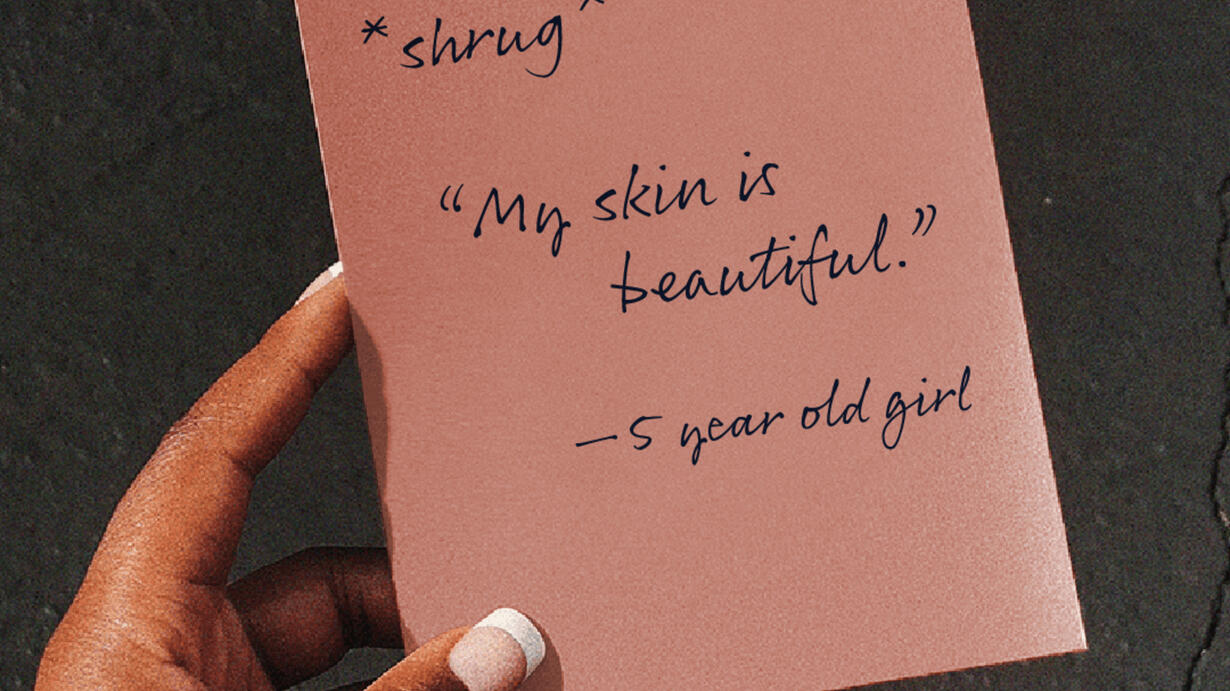 *shrug*
“My skin is
beautiful.”
—5 year old girl